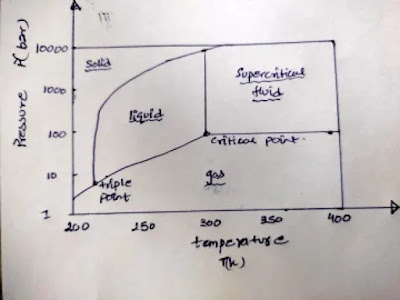 Pressure P(bar)
10000
1000
100
10
1
solid
liquid
supercritical
fluid
critical point.
gas
triple
point
200
250
300
350
400
temperature
T(K)